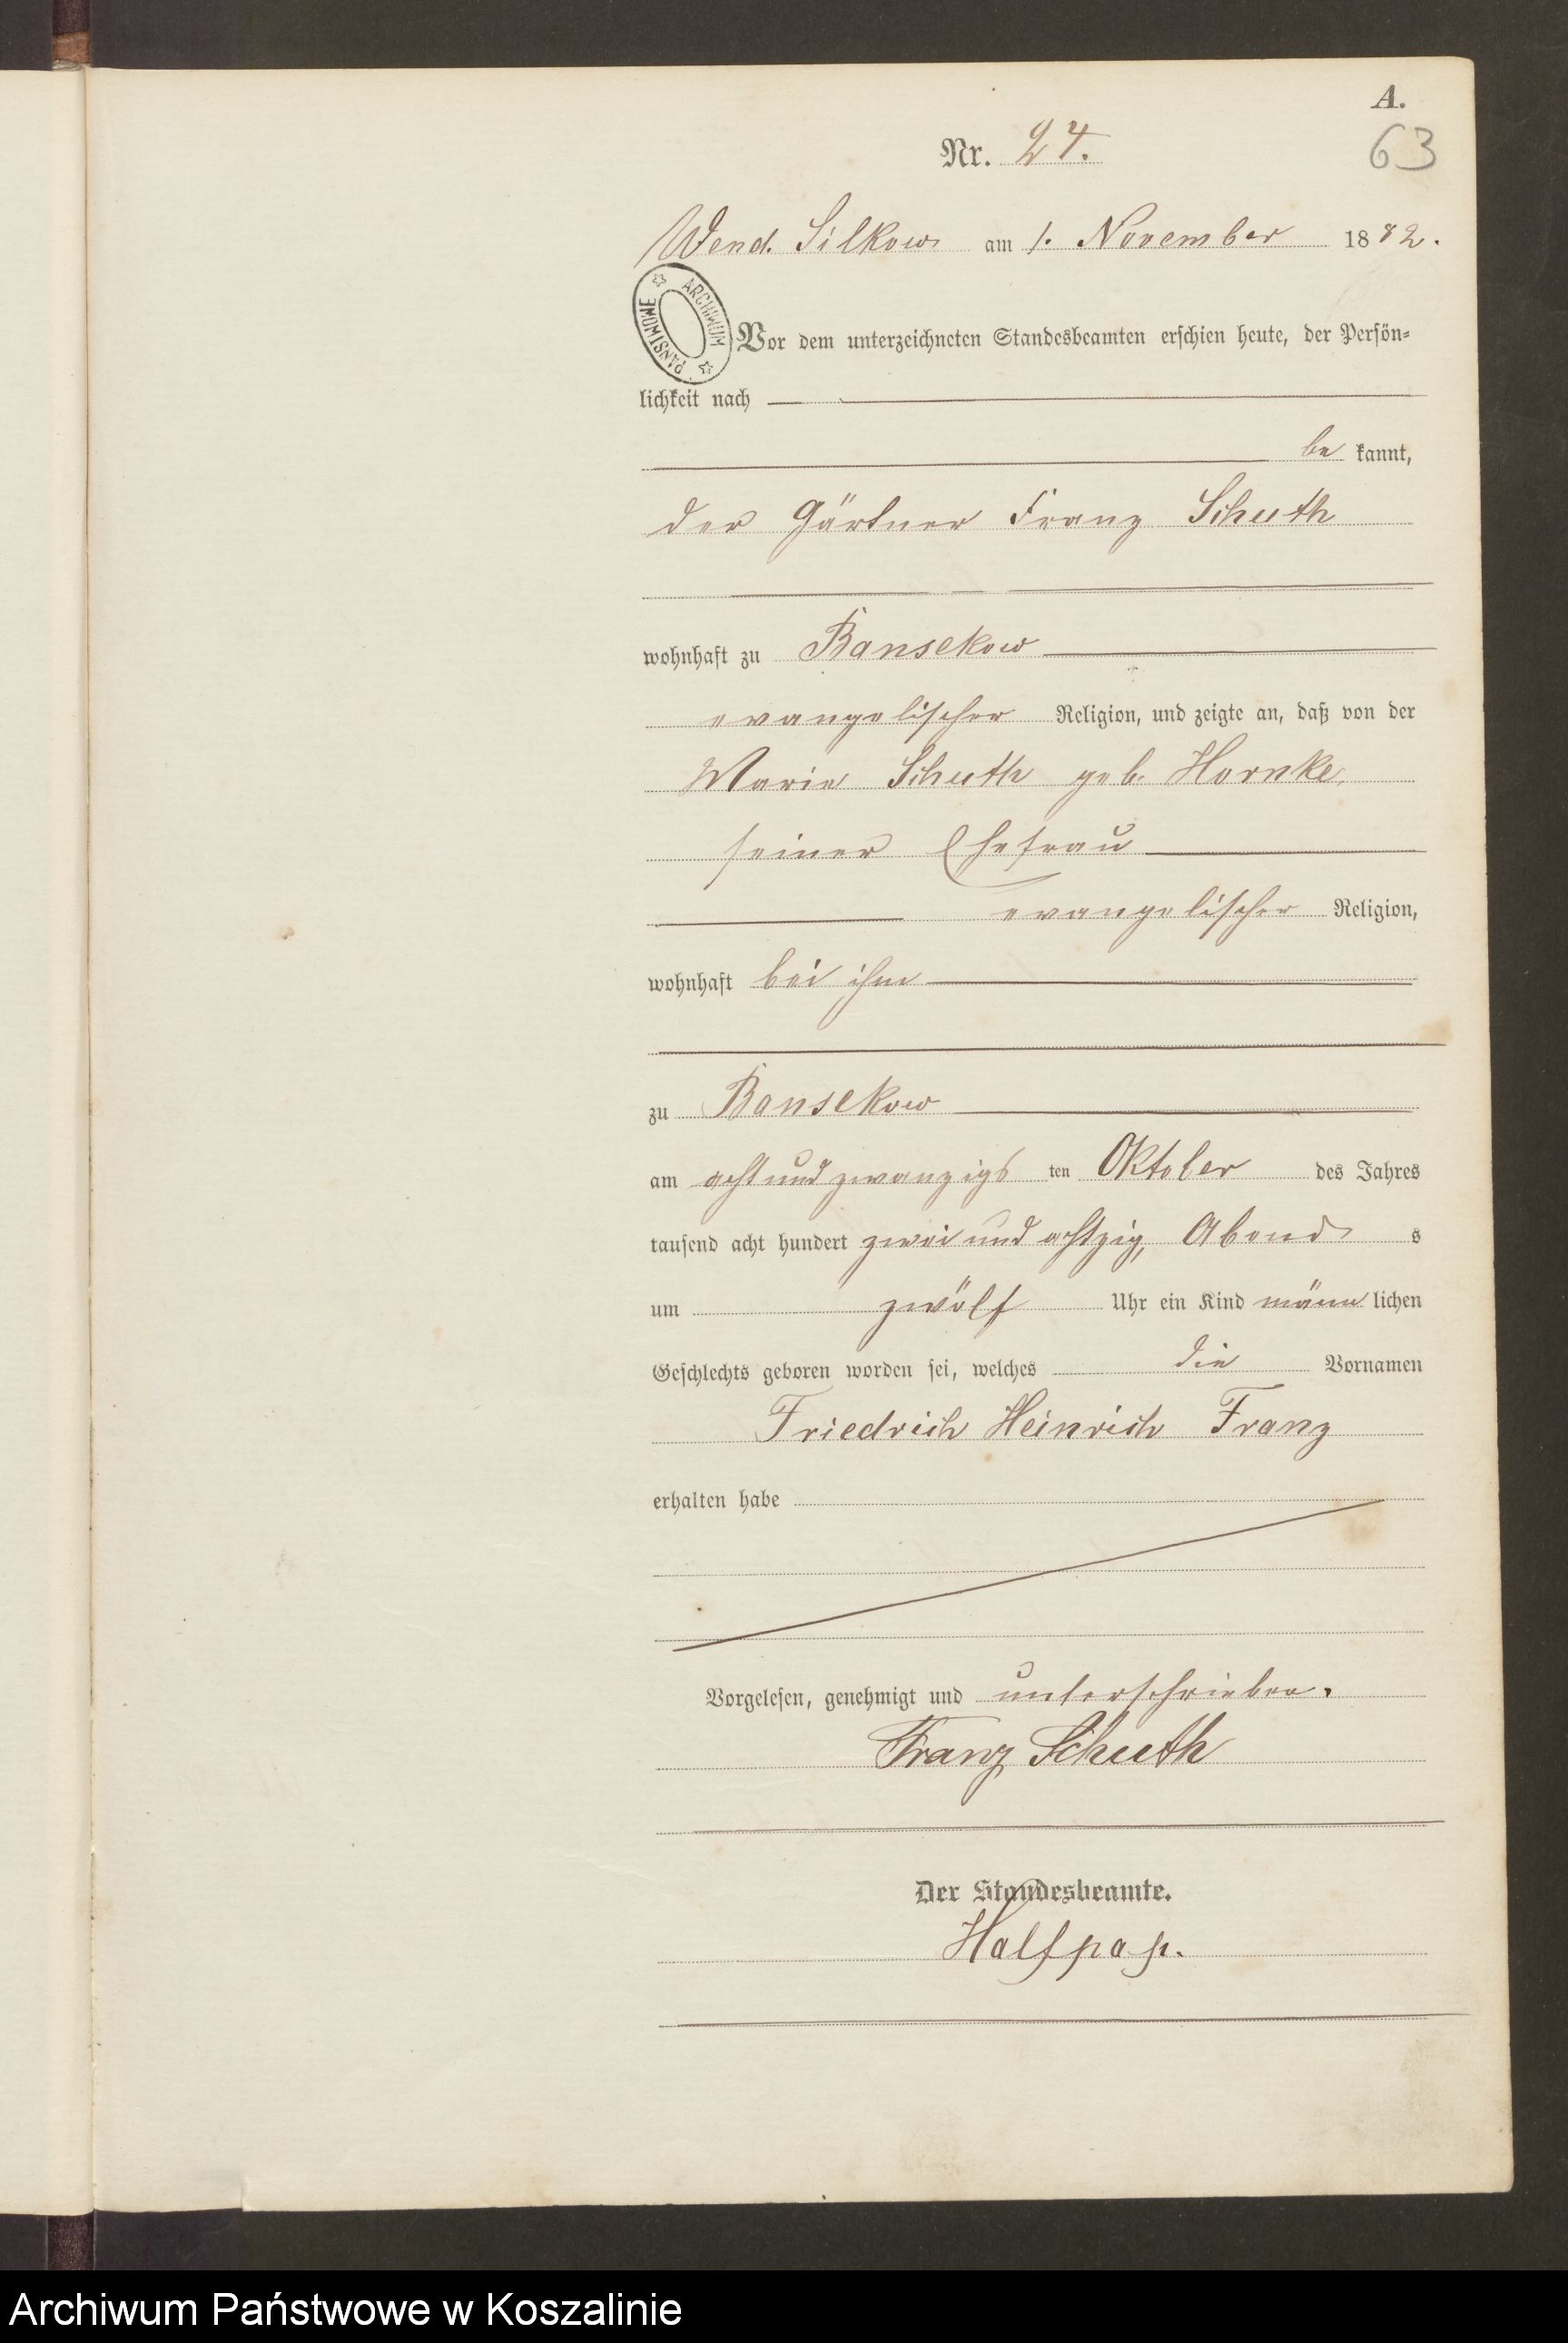 A.
Nr. 24.
63
Wend. Silkow am 1. November 1882.
ARCHIWUM PAŃSTWOWE
Vor dem unterzeichneten Standesbeamten erschien heute, der Persön-
lichkeit nach
be kannt,
der Gärtner Franz Schuth
wohnhaft zu Bansekow
evangelischer Religion, und zeigte an, daß von der
Marie Schuth geb. Hornke,
seiner Ehefrau
evangelischer Religion,
wohnhaft bei ihm
zu Bansekow
am achtundzwanzigs ten Oktober des Jahres
tausend acht hundert zwei und achtzig, Abend s
um zwölf Uhr ein Kind männ lichen
Geschlechts geboren worden sei, welches die Vornamen
Friedrich Heinrich Franz
erhalten habe
Vorgelesen, genehmigt und unterschrieben.
Franz Schuth
Der Standesbeamte.
Halfpap.
Archiwum Państwowe w Koszalinie